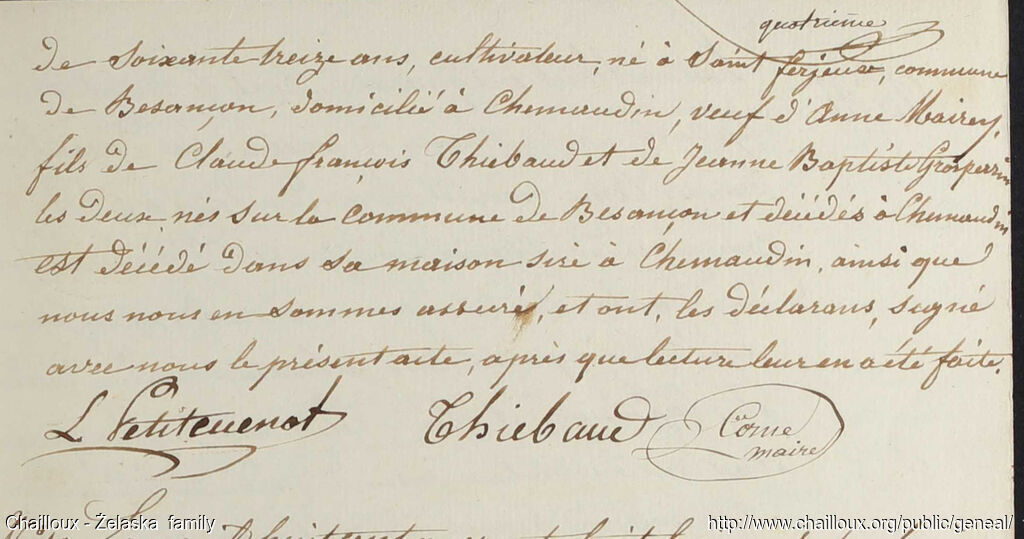 quatrième
de soixante treize ans, cultivateur, né à Saint ferjeux, commune
de Besançon, domicilié à Chemaudin, veuf d'Anne Mairey,
fils de Claude françois Thiebaud et de Jeanne Baptiste Grosperrin
les deux nés sur la commune de Besançon et décédés à Chemaudin
est décédé dans sa maison sise à Chemaudin, ainsi que
nous nous en sommes assuré, et ont, les déclarans, signé
avec nous le présent acte, après que lecture leur en a été faite.
L Petitcuenot Thiebaud Corne
maire
Chailloux - Želaska family http://www.chailloux.org/public/geneal/